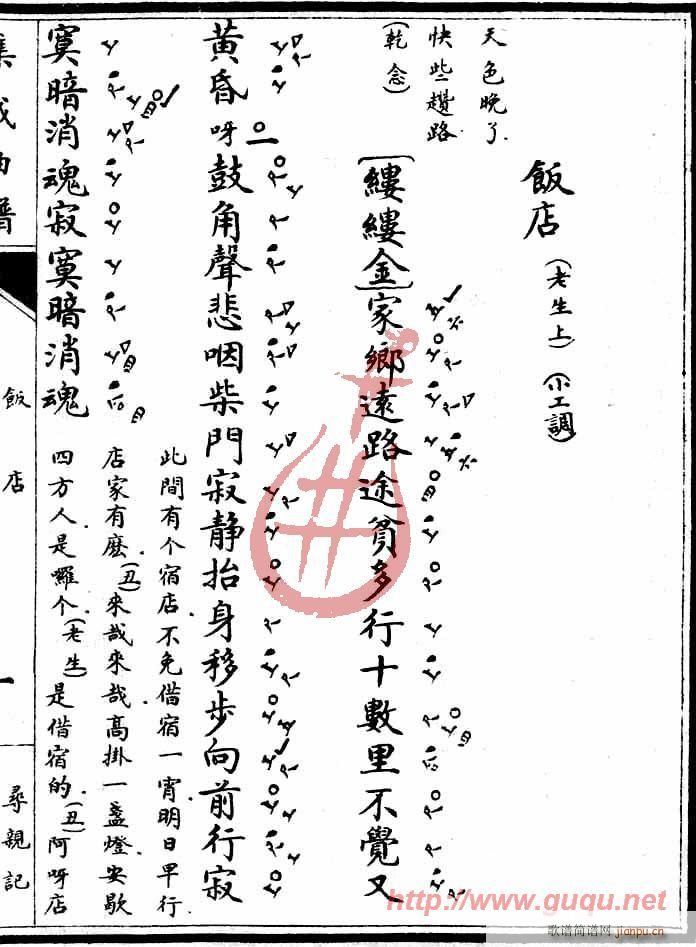 飯店(老生上)(小工調)
天色晚了.
快些趲路
(乾念)
[縷縷金]家鄉遠路途貧多行十數里不覺又
黃昏呀鼓角聲悲咽柴門寂靜抬身移步向前行寂
寞暗消魂寂寞暗消魂
此間有个宿店.不免借宿一宵明日早行.
店家有麽.(丑)來哉來哉高掛一盞燈.安歇
四方人.是囉个.(老生)是借宿的.(丑)阿呀店
集成曲譜
飯店
一
尋親記
http://www.guqu.net
歌谱简谱网
jianpu.cn